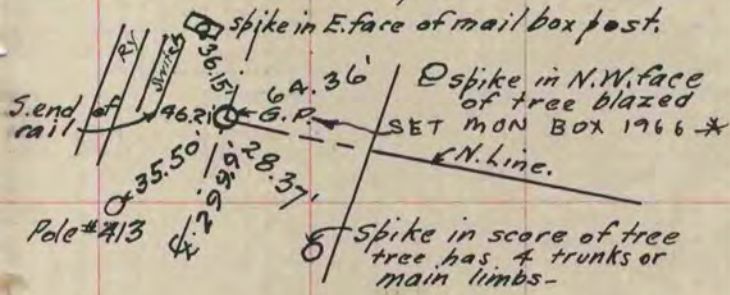 spike in E. face of mail box post.
Ry
Switch
36.15'
64.36'
spike in N.W. face
of tree blazed
S. end
of
rail
46.21
G.P.
SET MON BOX 1966 *
N. Line.
35.50'
299.9
28.37'
Pole #413
Spike in score of tree
tree has 4 trunks or
main limbs-